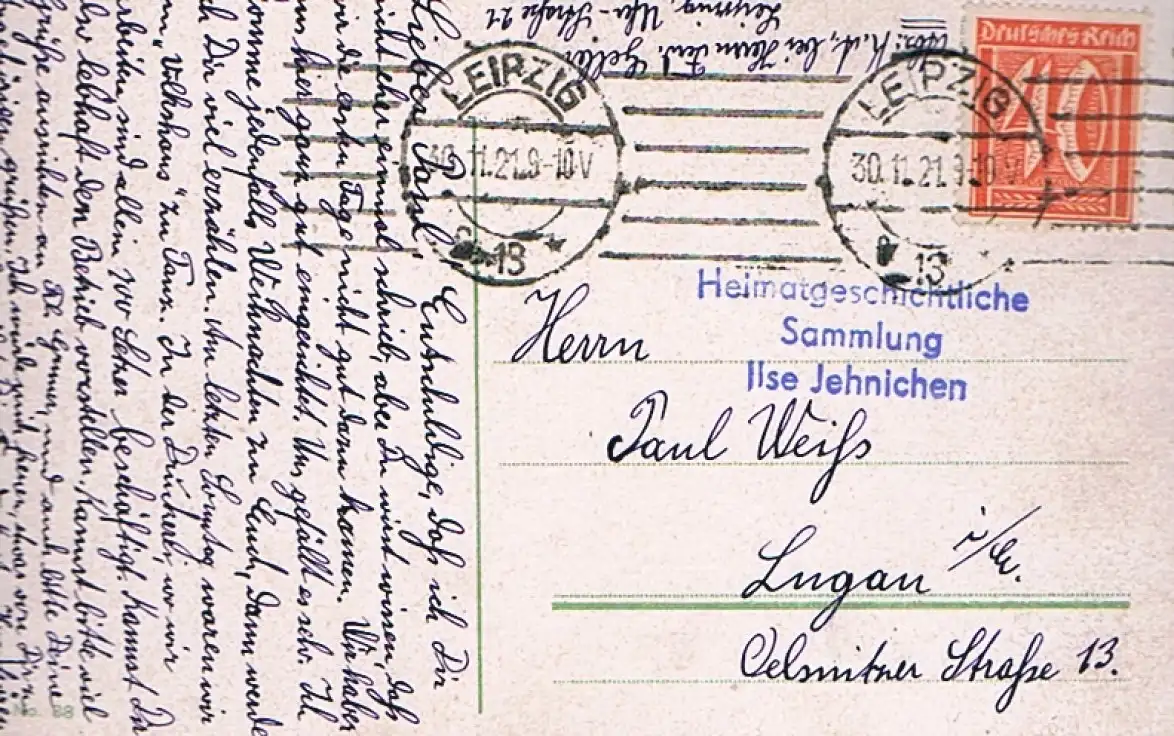 Lieber Paul! Entschuldige, daß ich Dir
nicht eher einmal schrieb, aber Du wirst wissen, daß
wir die ersten Tage nicht gut dazu kamen. Wir haben
uns hier ganz gut eingerichtet. Uns gefällt es sehr. Ich
komme jedenfalls Weihnachten zu Euch, dann werde
ich Dir viel erzählen. Am letzten Sonntag waren wir
im „Volkshaus“ zu Tanz. In der Druckerei, wo wir
arbeiten sind allein 700 Setzer beschäftigt. Kannst Du
Dir lebhaft den Betrieb vorstellen. Kannst bitte viel
Grüße ausrichten an und auch bitte Deine
grüßen. Ich würde mich freuen, etwas von Dir
Abs: K. W., bei Herrn Ferd. Geßler
Leipzig, Straße 21
LEIPZIG
30.11.21.9-10V
13
LEIPZIG
30.11.21.9-10V
13
Deutsches Reich
40
Heimatgeschichtliche
Sammlung
Ilse Jehnichen
Herrn
Paul Weiß
Lugau i/Er.
Oelsnitzer Straße 13.